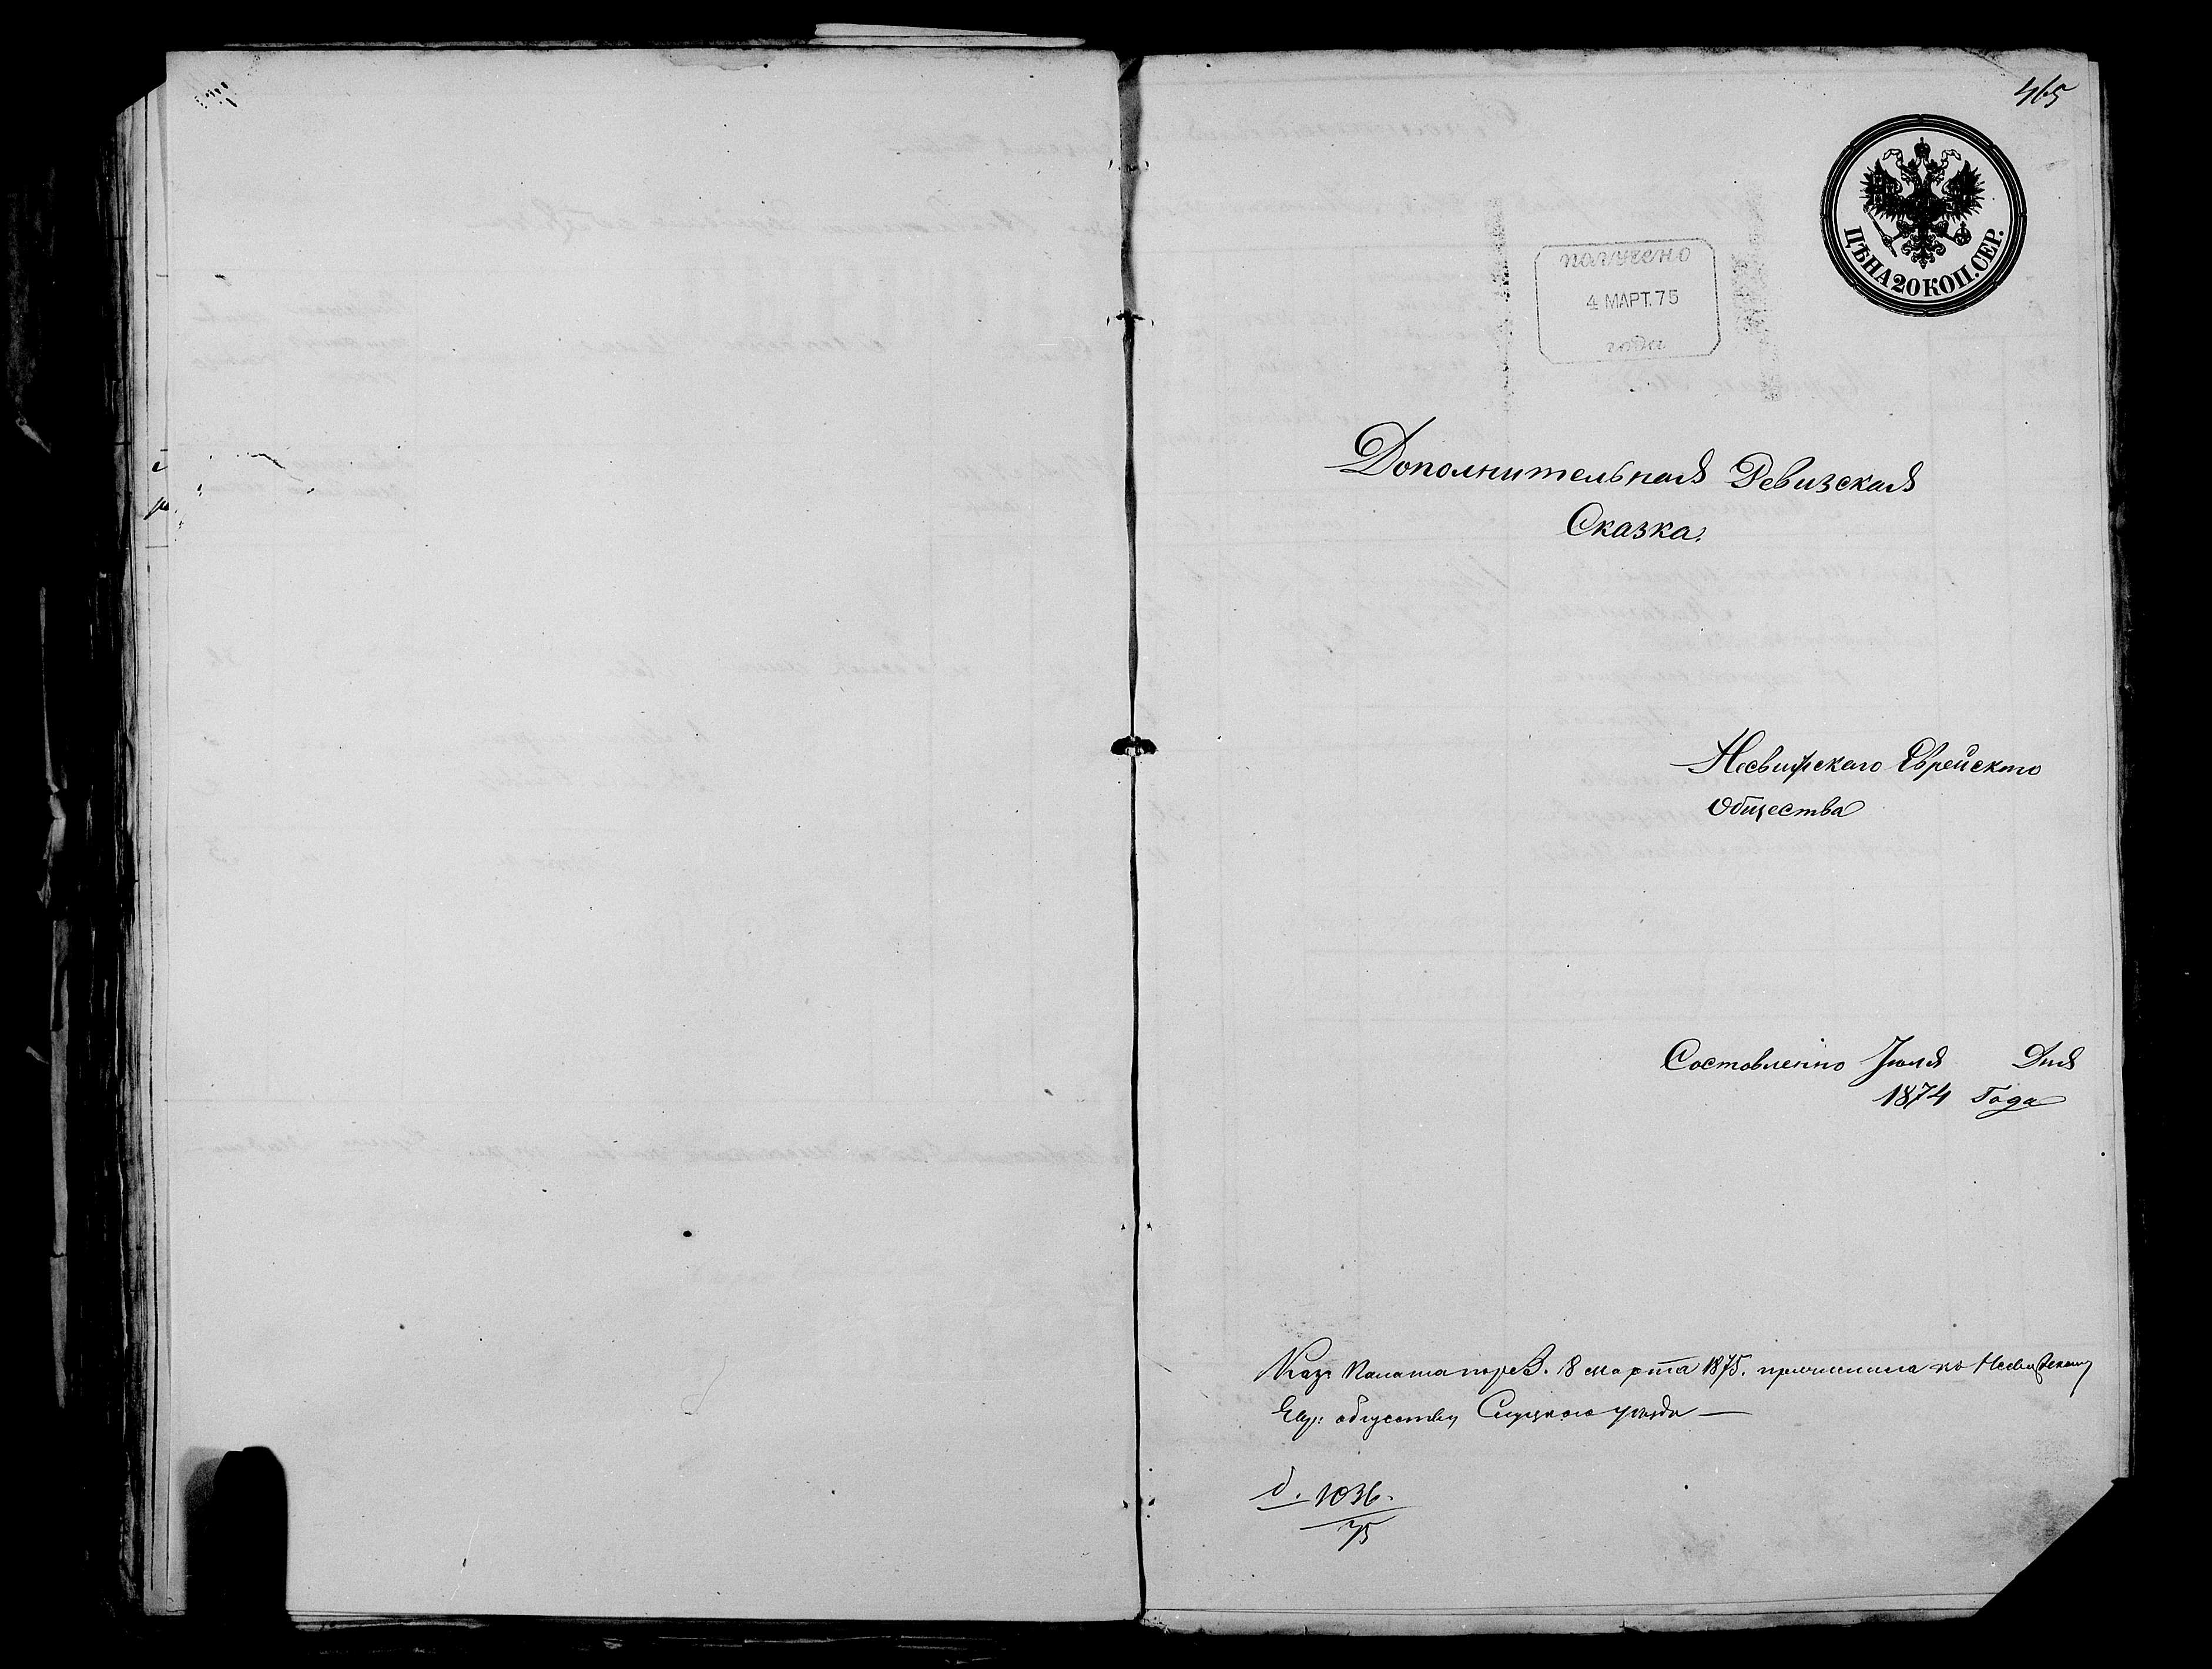 465
ЦѢНА 20 КОП. СЕР.
получено
4 МАРТ. 75
года
Дополнительная Ревизская
Сказка.
Несвижскаго Еврейскаго
Общества
Составленно Июля Дня
1874 Года
Каз. Палата 8 марта 1875. причислила къ Несвижскому
Евр: обществу Слуцкаго уѣзда —
д. 1036.
75